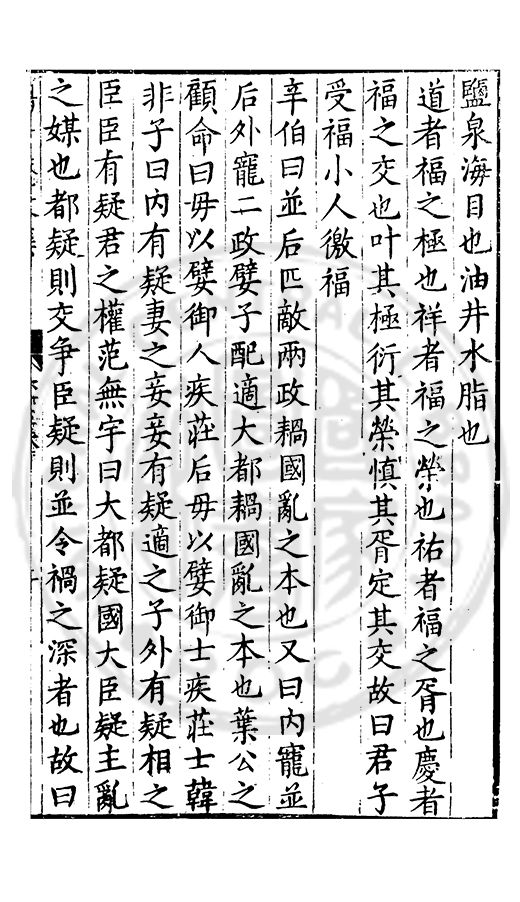 鹽泉海目也油井水脂也
道者福之極也祥者福之榮也祐者福之胥也慶者
福之交也叶其極衍其榮慎其胥定其交故曰君子
受福小人徼福
辛伯曰並后匹敵兩政耦國亂之本也又曰內寵並
后外寵二政嬖子配適大都耦國亂之本也葉公之
顧命曰毋以嬖御人疾莊后毋以嬖御士疾莊士韓
非子曰內有疑妻之妾妾有疑適之子外有疑相之
臣臣有疑君之權范無宇曰大都疑國大臣疑主亂
之媒也都疑則交争臣疑則並令禍之深者也故曰